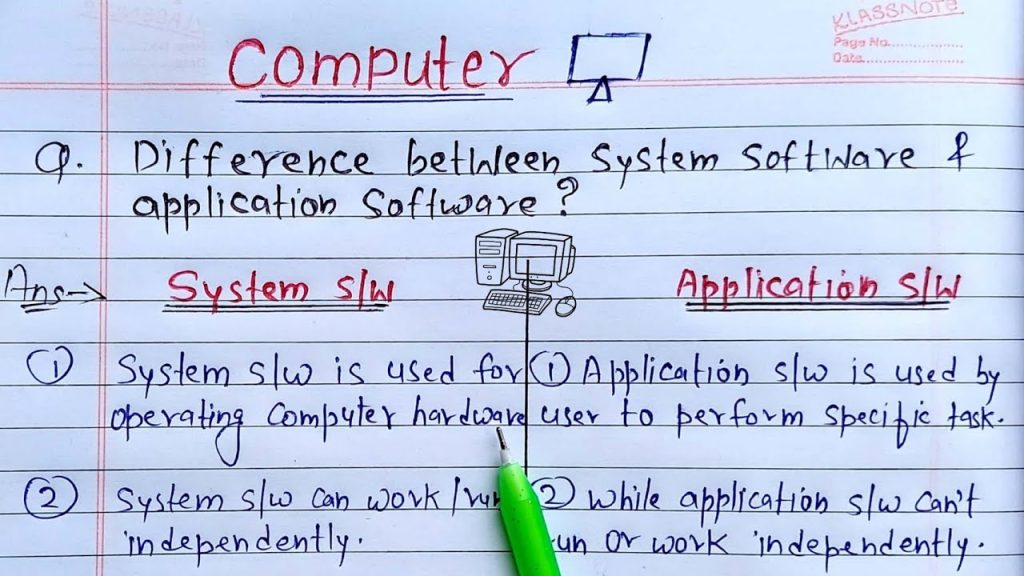 KLASSNOTE
Page No.
Date
Computer
Q. Difference between System Software &
application Software?
Ans→ System s/w Application s/w
① System s/w is used for
operating computer hardware
① Application s/w is used by
user to perform specific task.
② System s/w can work/run
independently.
② While application s/w can't
run or work independently.